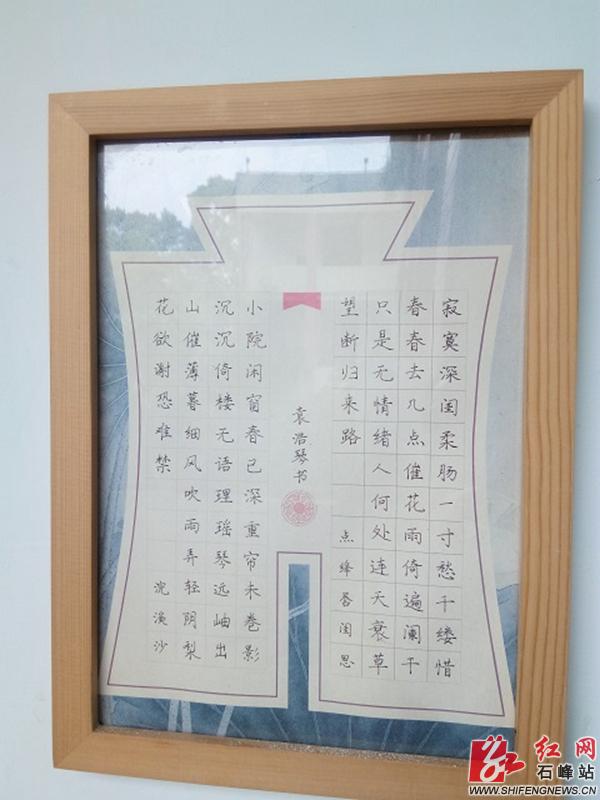 寂寞深闺柔肠一寸愁千缕惜
春春去几点催花雨倚遍阑干
只是无情绪人何处连天衰草
望断归来路 点绛唇闺思
袁浩琴书
小院闲窗春已深重帘未卷影
沉沉倚楼无语理瑶琴远岫出
山催薄暮细风吹雨弄轻阴梨
花欲谢恐难禁 浣溪沙
红网
石峰站
WWW.SHIFENGNEWS.CN